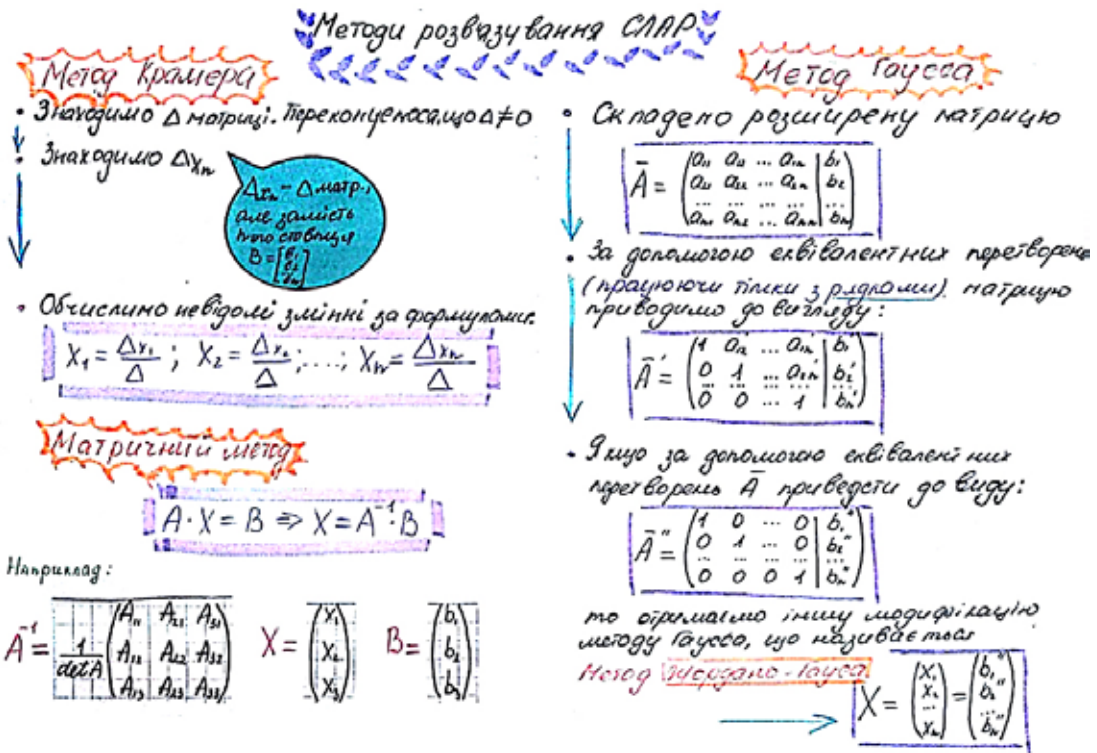 Методи розв'язування СЛАР
Метод Крамера
• Знаходимо Δ матриці. Переконуємося, що Δ≠0
• Знаходимо Δxₙ
Δxₙ - Δ матр.,
але замість
n-ого стовпця
B = [b₁
b₂
bₙ]
• Обчислимо невідомі змінні за формулами:
X₁ = Δx₁/Δ ; X₂ = Δx₂/Δ ; ....; Xₙ = Δxₙ/Δ
Матричний метод
A · X = B ⇒ X = A⁻¹·B
Наприклад:
A⁻¹ = 1/detA (A₁₁ A₂₁ A₃₁
A₁₂ A₂₂ A₃₂
A₁₃ A₂₃ A₃₃)
X = (x₁
x₂
x₃)
B = (b₁
b₂
b₃)
Метод Гаусса
• Складемо розширену матрицю
Ā = (a₁₁ a₁₂ ... a₁ₙ | b₁
a₂₁ a₂₂ ... a₂ₙ | b₂
... ... ... ... | ...
aₙ₁ aₙ₂ ... aₙₙ | bₙ)
• За допомогою еквівалентних перетворень
(працюючи тільки з рядками) матрицю
приводимо до вигляду:
Ā' = (1 a₁₂' ... a₁ₙ' | b₁'
0 1 ... a₂ₙ' | b₂'
... ... ... ... | ...
0 0 ... 1 | bₙ')
• Якщо за допомогою еквівалентних
перетворень Ā привести до виду:
Ā'' = (1 0 ... 0 | b₁''
0 1 ... 0 | b₂''
... ... ... ... | ...
0 0 0 1 | bₙ'')
то отримаємо іншу модифікацію
методу Гаусса, що називається
Метод Жордано-Гауса
X = (x₁
x₂
...
xₙ) = (b₁''
b₂''
...
bₙ'')